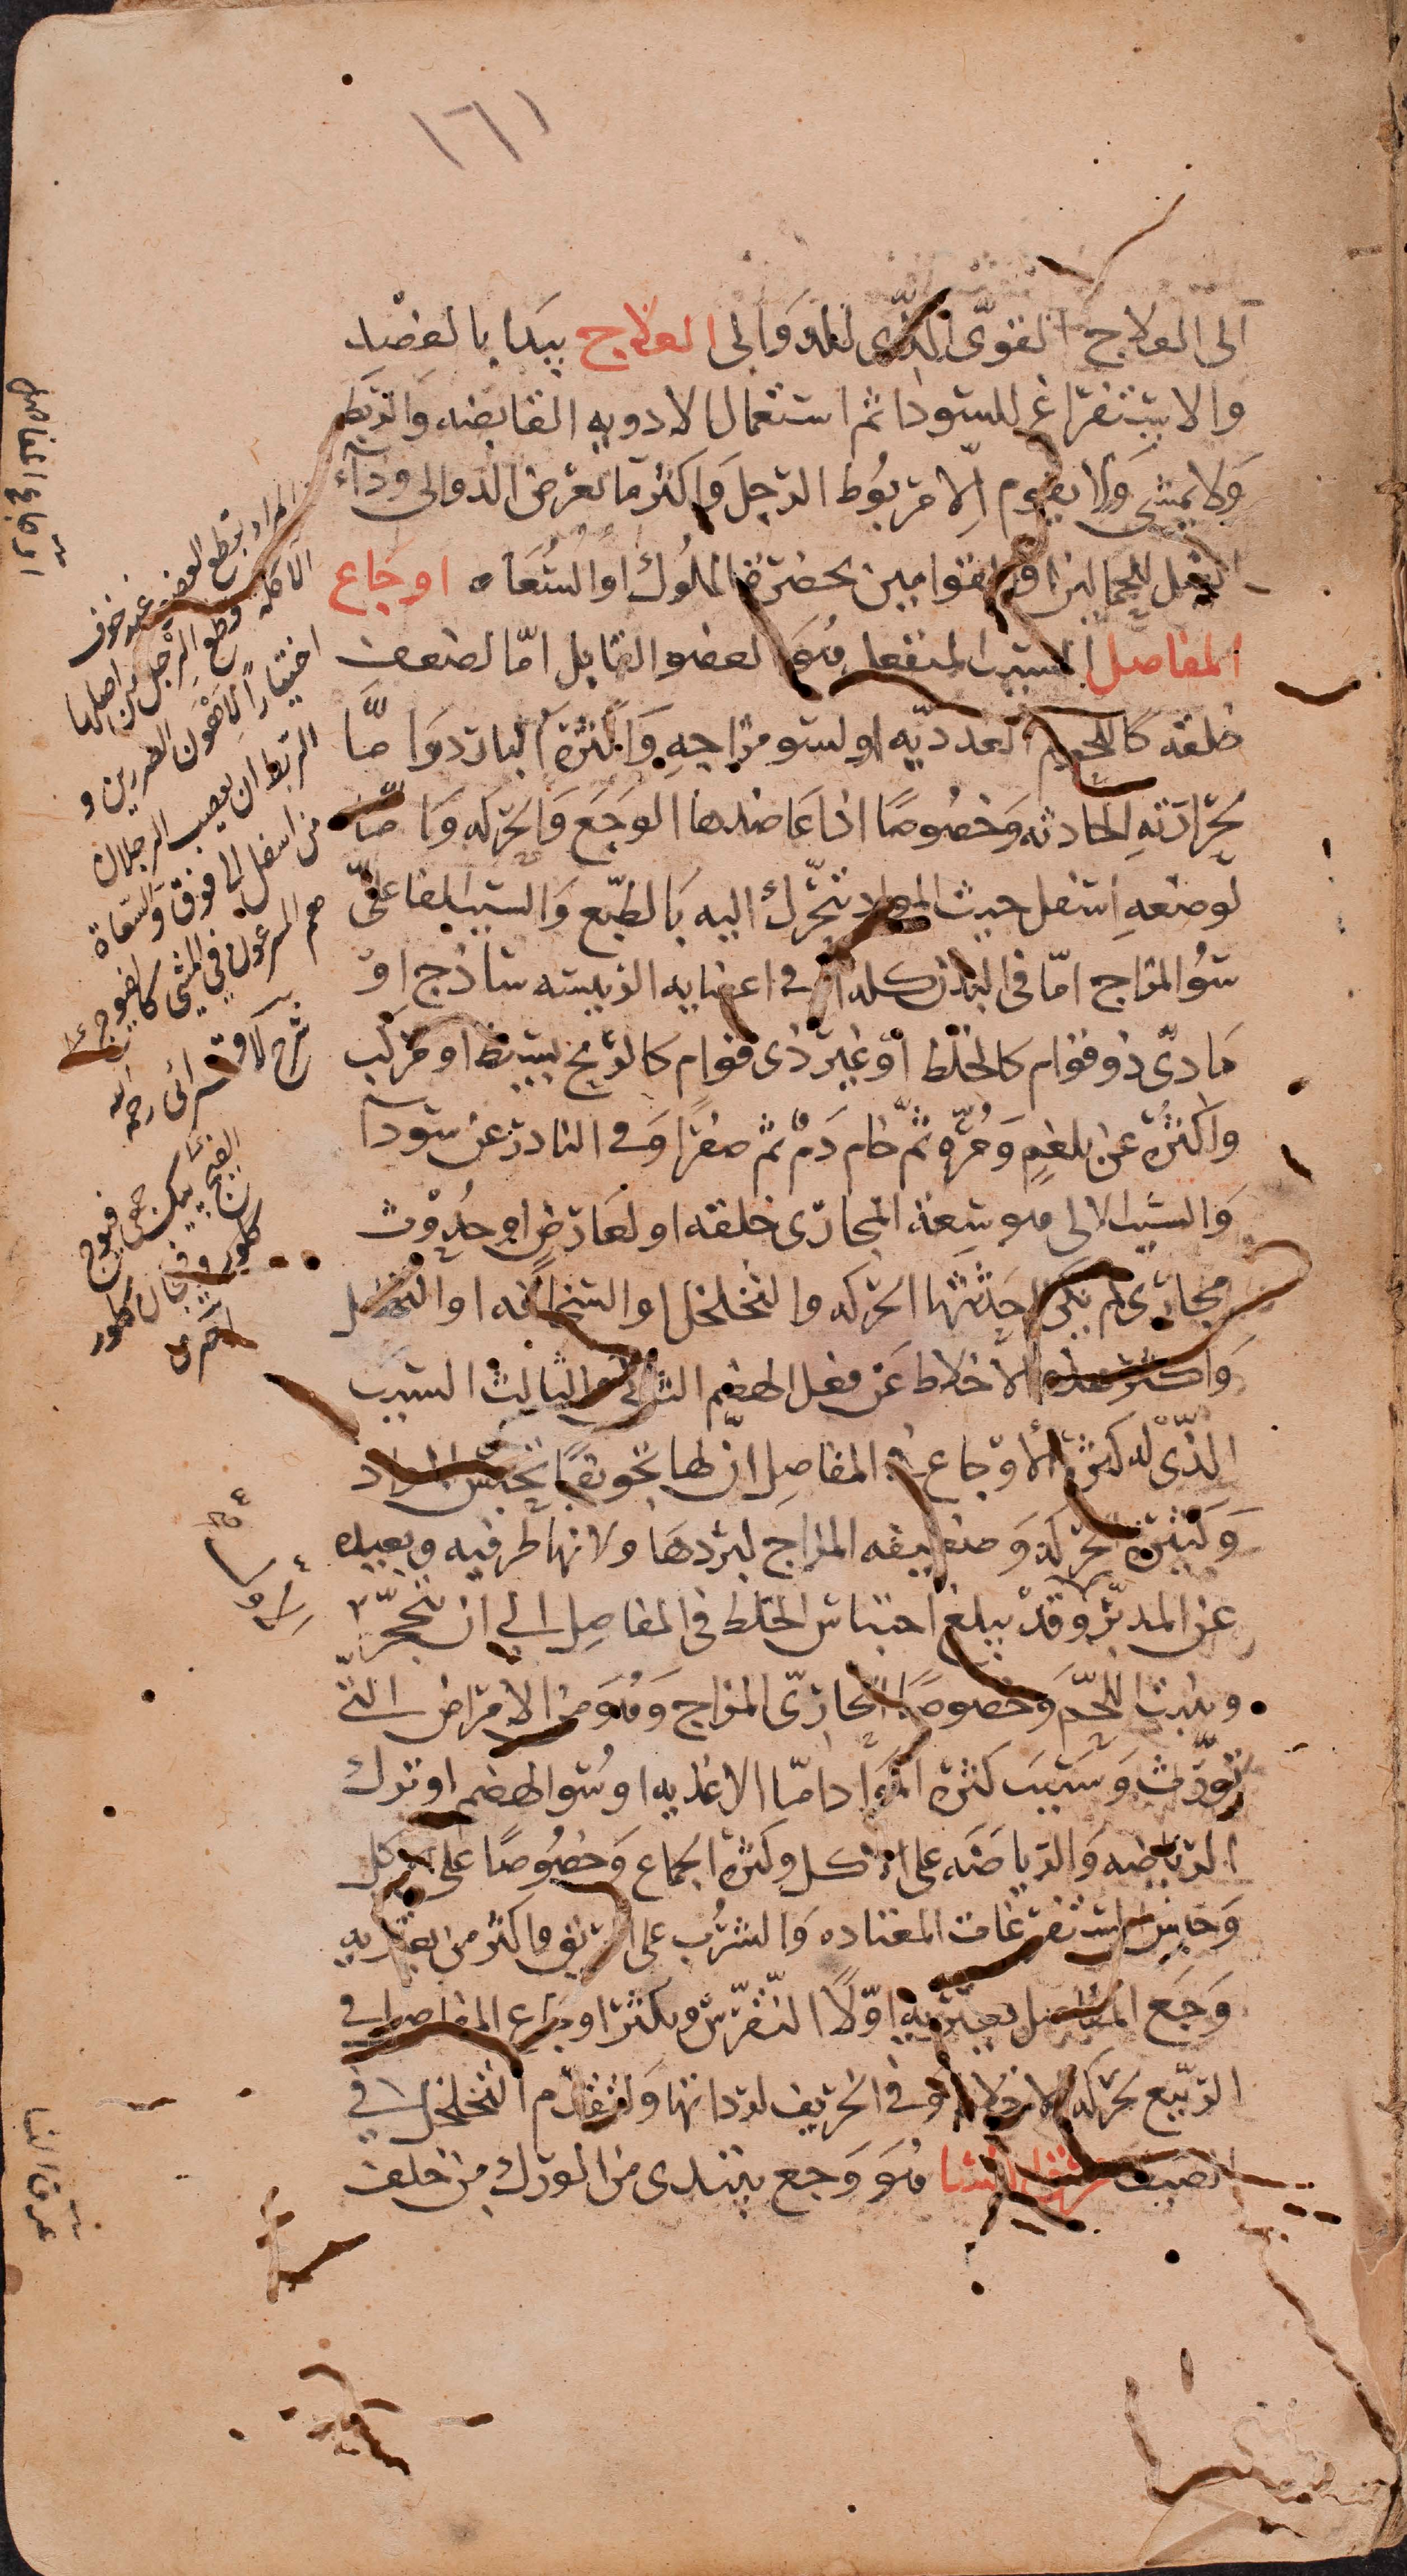 ١٦١
الى العلاج القوى الذى للدوالى العلاج يبدا بالفصد
والاستفراغ للسودا ثم استعمال الادويه القابضه والربط
ولا يمشى ولا يقوم الا مربوط الرجل واكثر ما تعرض الدوالى وداء
الفيل للحمالين او القوامين بحضرة الملوك او السعاه اوجاع
المفاصل السبب المنفعل هو العضو القابل اما لضعف
خلقته كاللحوم الغدديه او لسو مزاجهِ واكثره البارد واما
بحرارتهِ الحادثه وخصوصًا اذا عاضدها الوجع والحركه واما
لوضعهِ اسفل حيث المواد تتحرك اليه بالطبع والسبب الفاعلى
سوُ المزاج اما فى البدن كله او فى اعضايه الرييسه ساذج او
مادى ذو قوام كالخلط او غير ذى قوام كالريح بسيط او مركب
واكثره عن بلغمٍ ومُرّهٍ ثم خام دم ثم صفرا وفى النادر عن سودآ
والسبب الالى هو سعة المجارى خلقه او لعارضٍ او حدوث
مجارى لم تكن احدثتها الحركه والتخلخل او السخافه او التحلل
واكثر هذه الاخلاط عن فضل الهضم الثانى والثالث السبب
الذى له كثرة الاوجاع فى المفاصل ان لها تجويفًا تحتبس المواد
وكثيرة الحركه وضعيفه المزاج لبردها ولانها طرفيه وبعيده
عن المدبر وقد يبلغ احتباس الخلط فى المفاصل الى ان يتحجر
وينبت اللحم وخصوصًا الحارى المزاج وهو من الامراض التى
تورث وسبب كثرة المواد اما الاغذيه او سُو الهضم او ترك
الرياضه والرياضه على الاكل وكثرة الجماع وخصوصًا على الاكل
وحابس استفراغات المعتاده والشرب على الريق واكثر من يعتريه
وجع المفاصل يعتريه اولًا النقرس ويكثر اوجاع المفاصل فى
الربيع لحركه الاخلاط وفى الخريف لرداتها ولتقدم التخلخل فى
الصيف عرق النسا هو وجع يبتدى من الورك من خلف
المراد بقطع العضو عند خوف
الآكله قطع الرجل من اصلها
اختيارًا لاهون الضررين و
الربط ان يعصب الرجلان
من اسفل الى فوق والسعاة
هم المسرعون فى المشى كالفيوج
شرح الاقسرائى رحمه الله
اوجاع المفاصل
عرق النسا